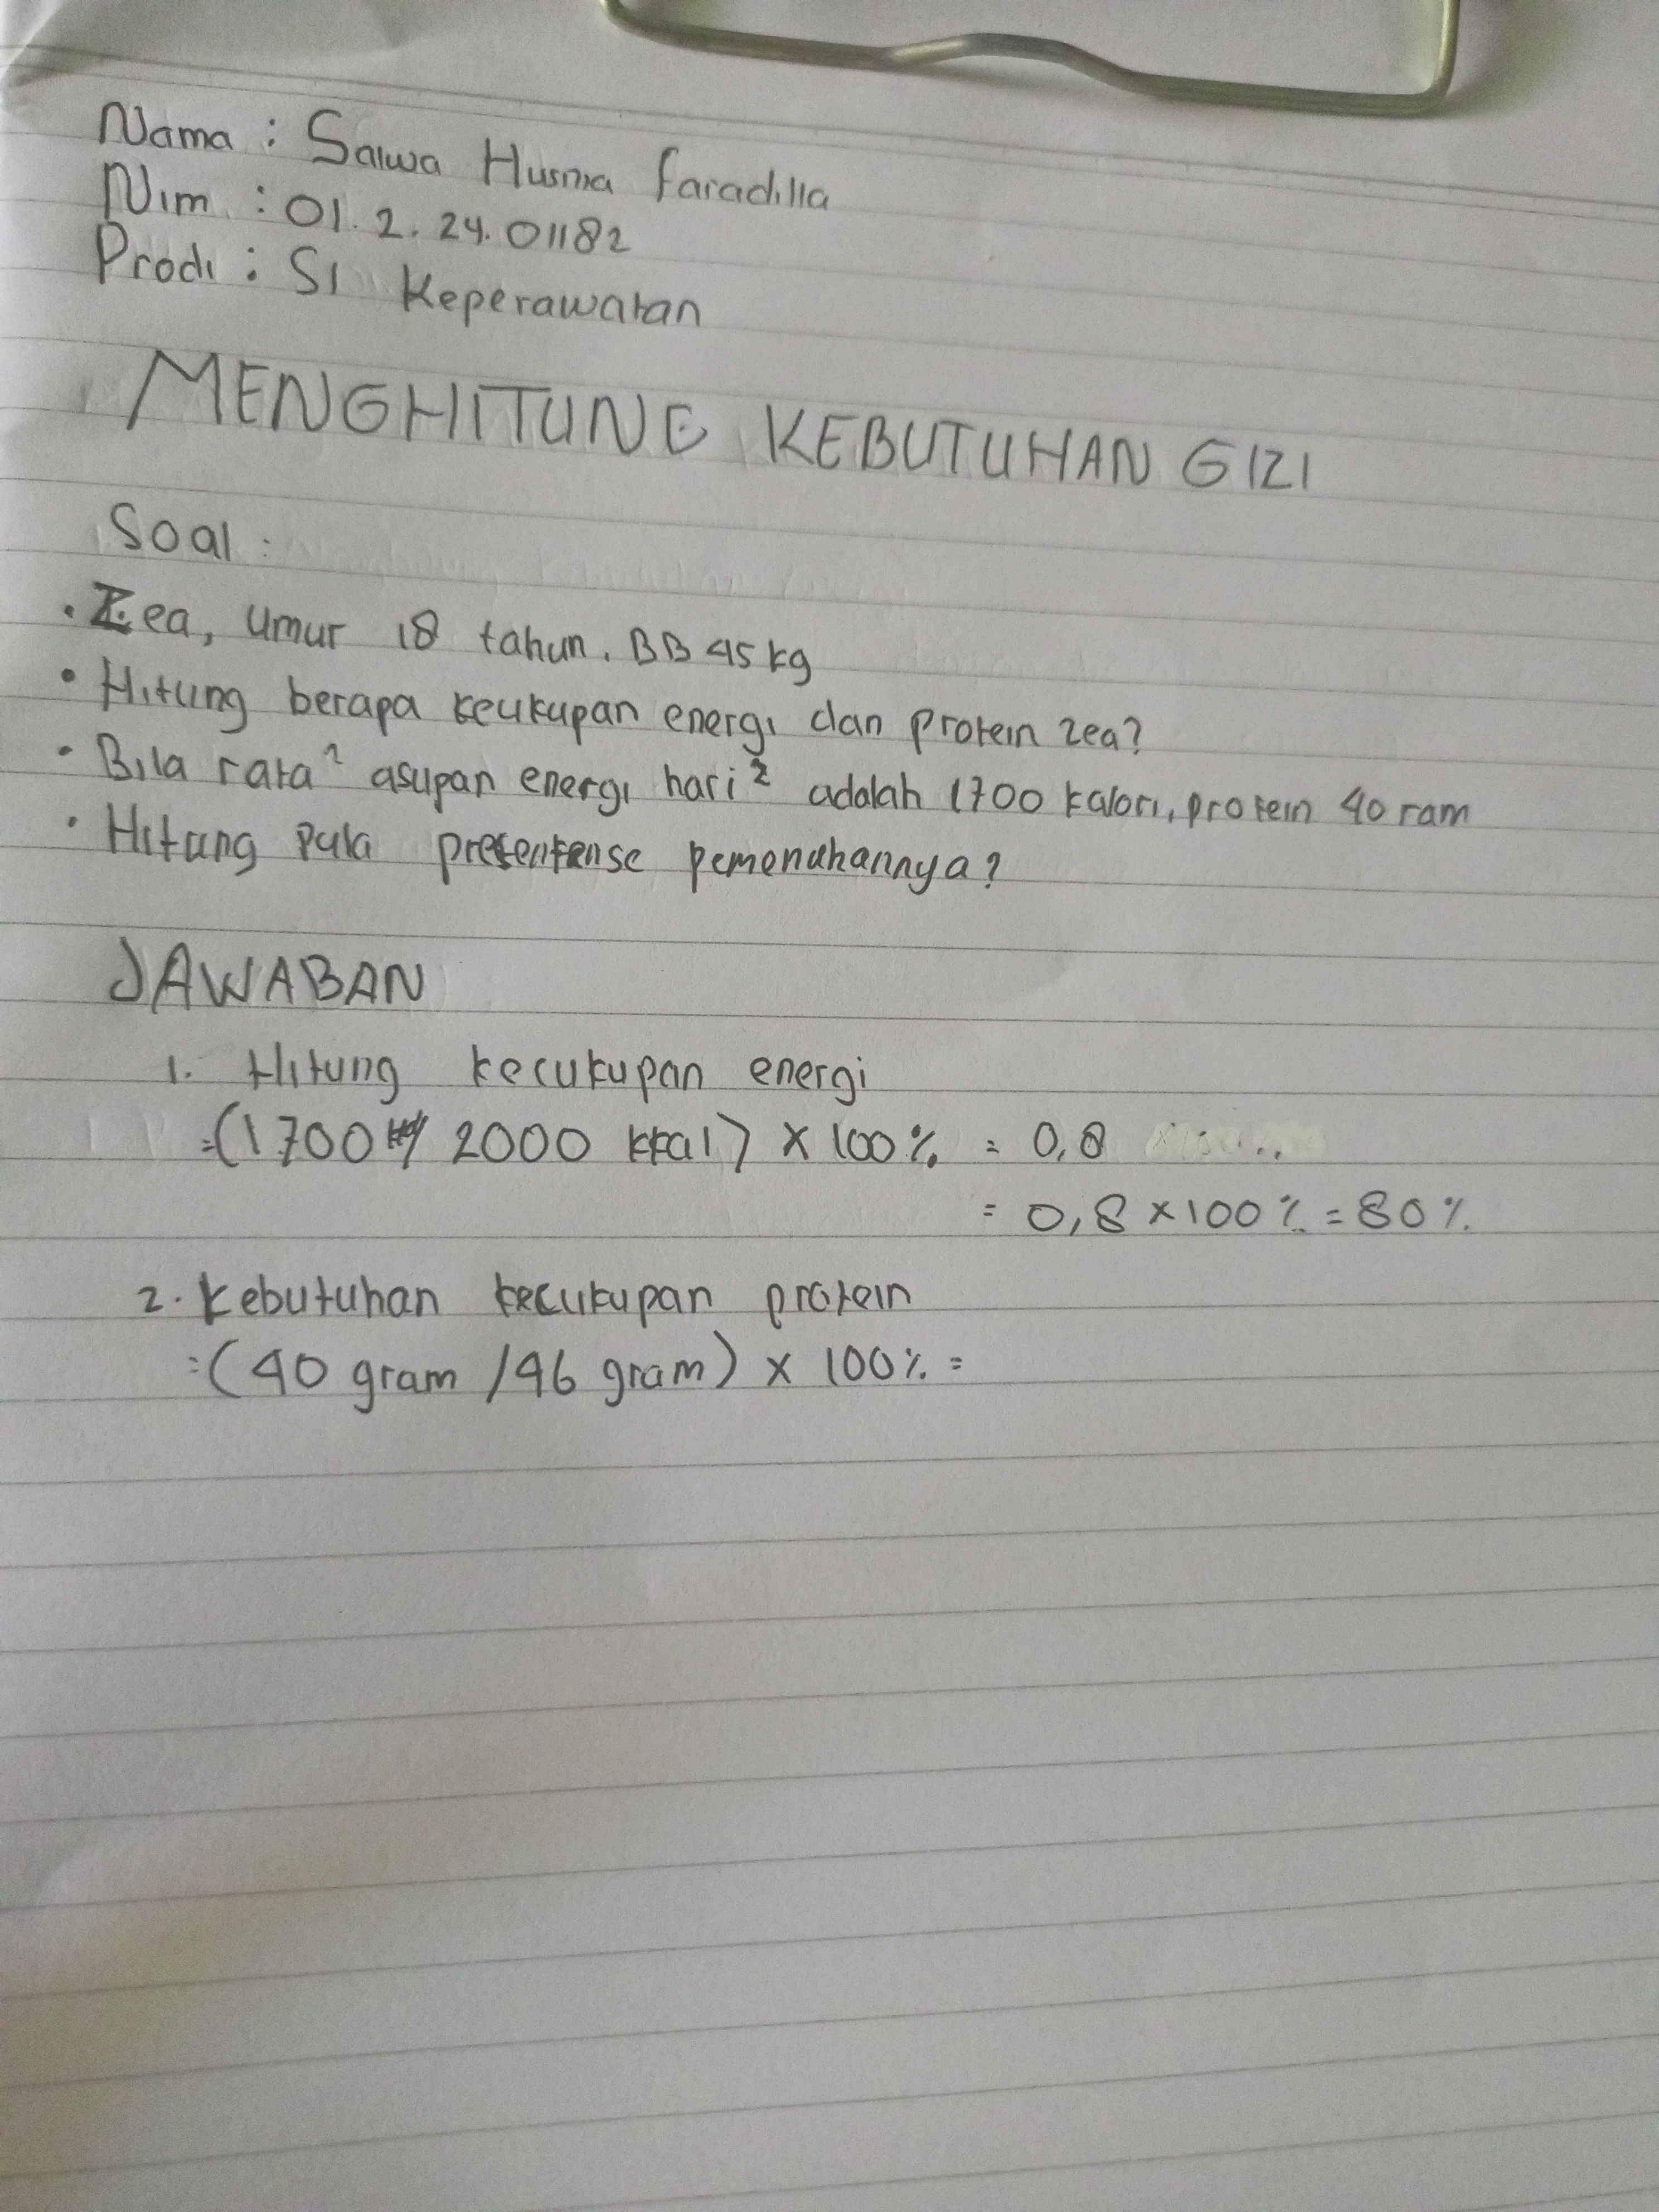 Nama : Salwa Husna Faradilla
Nim : 01.2.24.01182
Prodi : S1 Keperawatan
MENGHITUNG KEBUTUHAN GIZI
Soal :
• Zea, Umur 18 tahun. BB 45 kg
• Hitung berapa keukupan energi dan protein zea?
• Bila rata² asupan energi hari² adalah 1700 kalori, protein 40 ram
• Hitung pula presentense pemenuhannya?
JAWABAN
1. Hitung kecukupan energi
=(1700 / 2000 kkal) x 100% = 0,8
= 0,8 x 100% = 80%
2. Kebutuhan kecukupan protein
=(40 gram / 46 gram) x 100% =